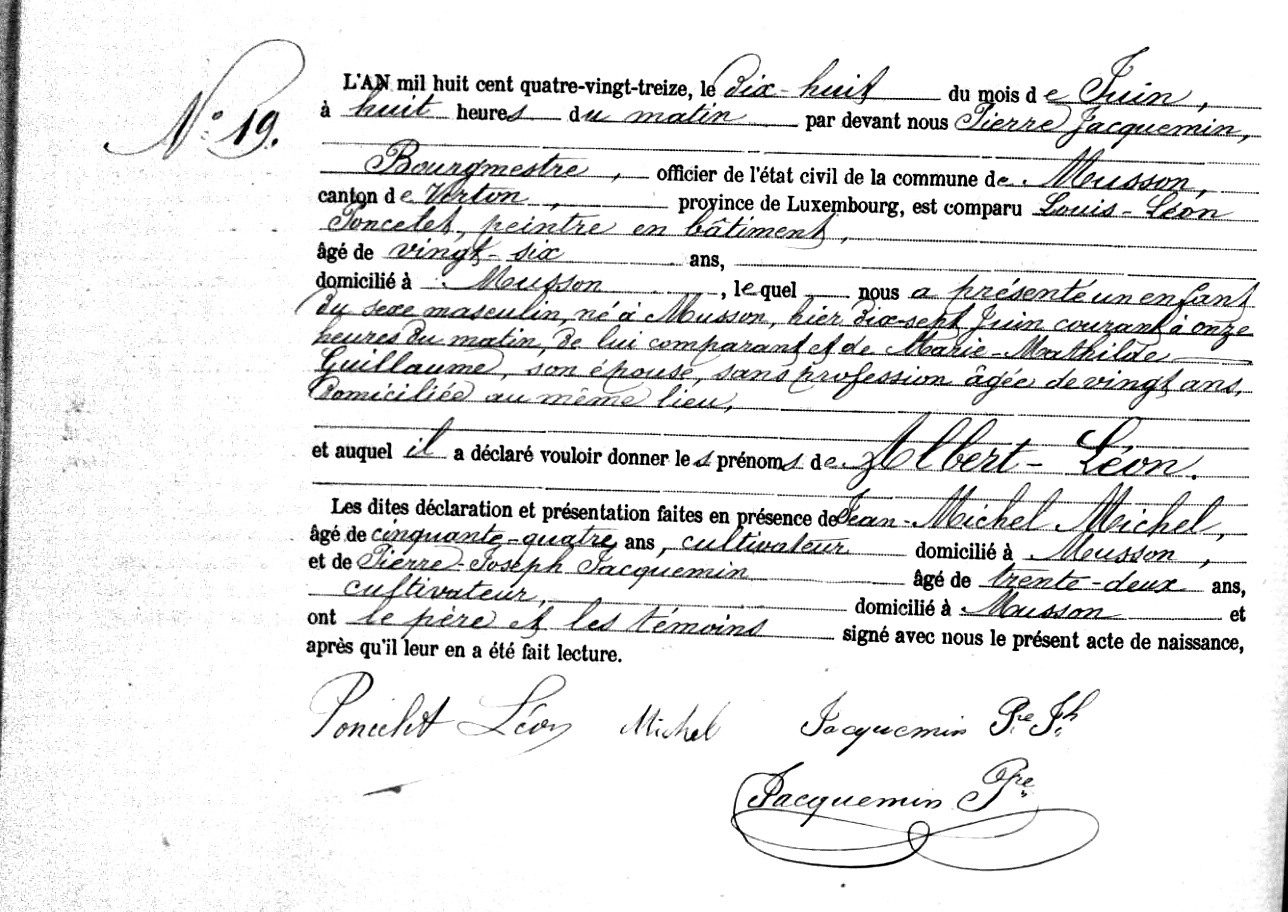 N° 19.
L'AN mil huit cent quatre-vingt-treize, le dix-huit du mois de Juin,
à huit heures du matin par devant nous Pierre Jacquemin,
Bourgmestre, officier de l'état civil de la commune de Musson,
canton de Virton, province de Luxembourg, est comparu Louis-Léon
Poncelet, peintre en bâtiment,
âgé de vingt-six ans,
domicilié à Musson, lequel nous a présenté un enfant
du sexe masculin, né à Musson, hier dix-sept Juin courant à onze
heures du matin, de lui comparant et de Marie-Mathilde
Guillaume, son épouse, sans profession âgée de vingt ans,
domiciliée au même lieu,
et auquel il a déclaré vouloir donner les prénoms de Albert-Léon.
Les dites déclaration et présentation faites en présence de Jean-Michel Michel,
âgé de cinquante-quatre ans, cultivateur domicilié à Musson,
et de Pierre-Joseph Jacquemin âgé de trente-deux ans,
cultivateur, domicilié à Musson et
ont le père et les témoins signé avec nous le présent acte de naissance,
après qu'il leur en a été fait lecture.
Poncelet Léon Michel Jacquemin Pre Jh
Jacquemin Pre